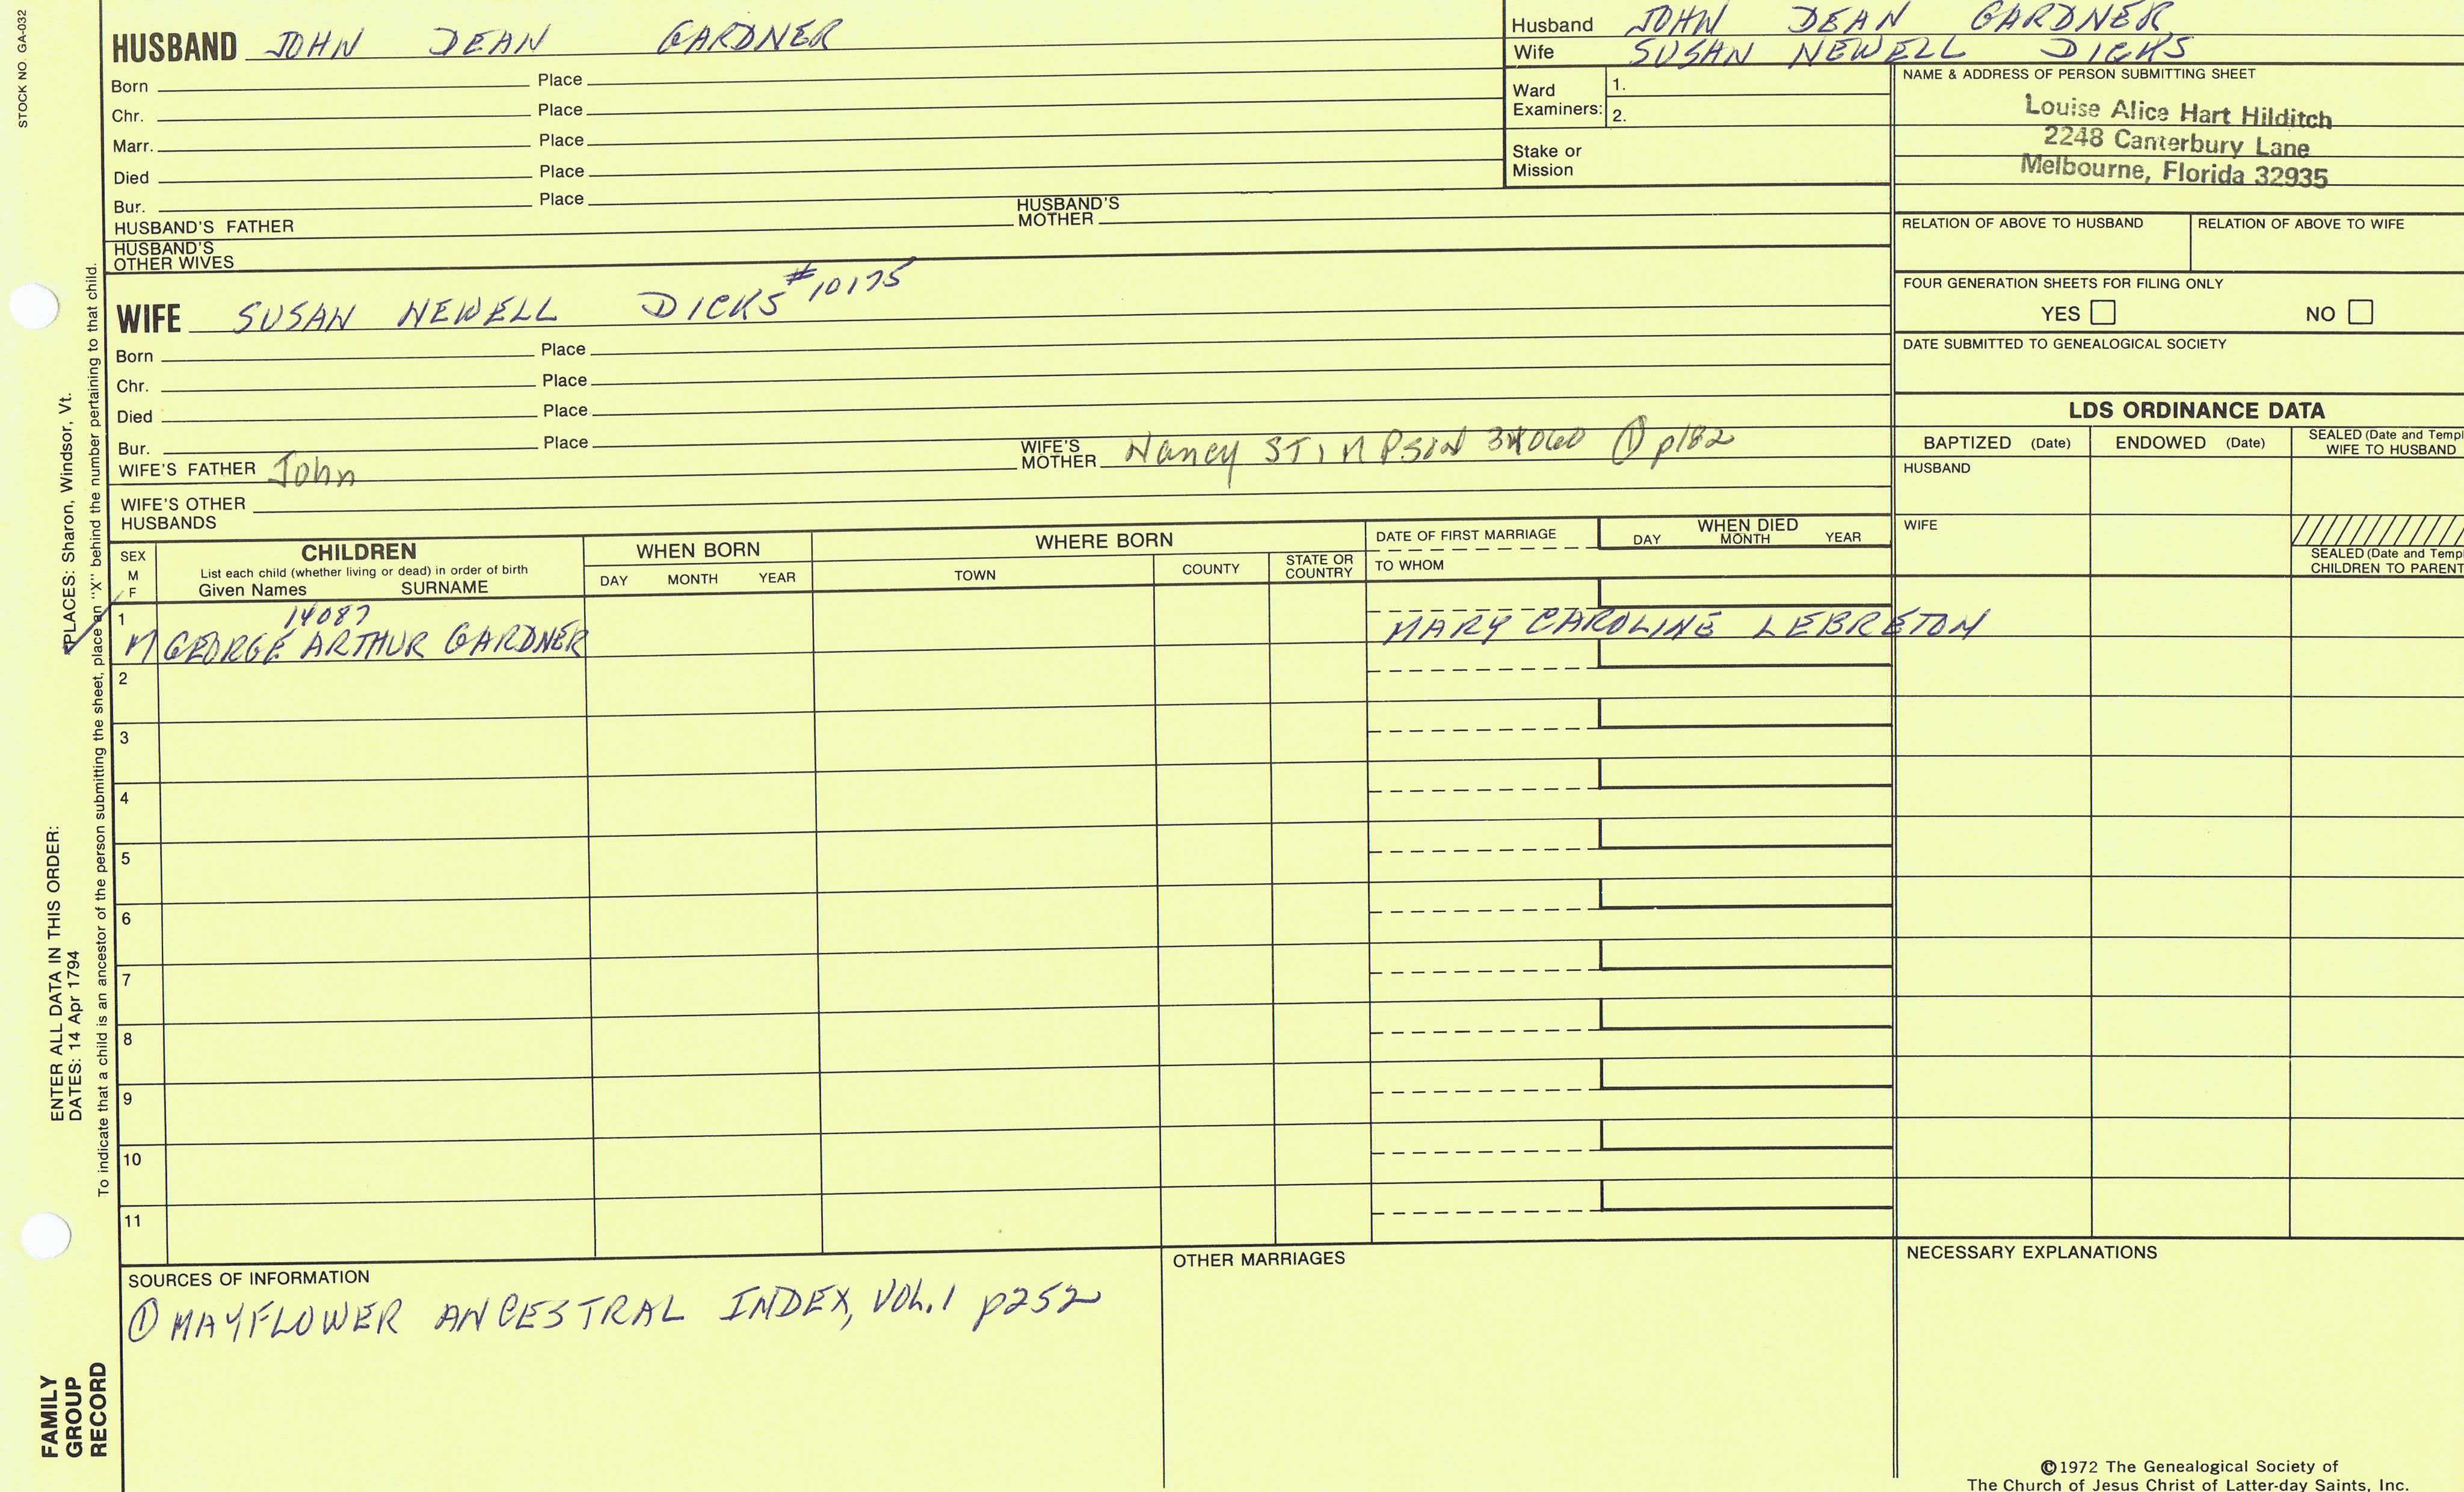 STOCK NO. GA-032
HUSBAND JOHN DEAN GARDNER
Born Place
Chr. Place
Marr. Place
Died Place
Bur. Place
HUSBAND'S FATHER HUSBAND'S MOTHER
HUSBAND'S OTHER WIVES
Husband JOHN DEAN GARDNER
Wife SUSAN NEWELL DICKS
Ward Examiners: 1.
2.
Stake or Mission
NAME & ADDRESS OF PERSON SUBMITTING SHEET
Louise Alice Hart Hilditch
2248 Canterbury Lane
Melbourne, Florida 32935
RELATION OF ABOVE TO HUSBAND RELATION OF ABOVE TO WIFE
FOUR GENERATION SHEETS FOR FILING ONLY
YES NO
DATE SUBMITTED TO GENEALOGICAL SOCIETY
WIFE SUSAN NEWELL DICKS #10175
Born Place
Chr. Place
Died Place
Bur. Place
WIFE'S FATHER John WIFE'S MOTHER Nancy STIMPSON ① p182
WIFE'S OTHER HUSBANDS
LDS ORDINANCE DATA
BAPTIZED (Date) ENDOWED (Date) SEALED (Date and Templ
WIFE TO HUSBAND
HUSBAND
WIFE
SEALED (Date and Templ
CHILDREN TO PARENT
SEX M F
CHILDREN
List each child (whether living or dead) in order of birth
Given Names SURNAME
WHEN BORN
DAY MONTH YEAR
WHERE BORN
TOWN COUNTY STATE OR COUNTRY
DATE OF FIRST MARRIAGE
TO WHOM
WHEN DIED
DAY MONTH YEAR
1 14087
M GEORGE ARTHUR GARDNER MARY CAROLINE LEBRETON
2
3
4
5
6
7
8
9
10
11
SOURCES OF INFORMATION
① MAYFLOWER ANCESTRAL INDEX, VOL.1 p252
OTHER MARRIAGES
NECESSARY EXPLANATIONS
©1972 The Genealogical Society of
The Church of Jesus Christ of Latter-day Saints, Inc.
FAMILY
GROUP
RECORD
ENTER ALL DATA IN THIS ORDER:
DATES: 14 Apr 1794
PLACES: Sharon, Windsor, Vt.
To indicate that a child is an ancestor of the person submitting the sheet, place an "X" behind the number pertaining to that child.